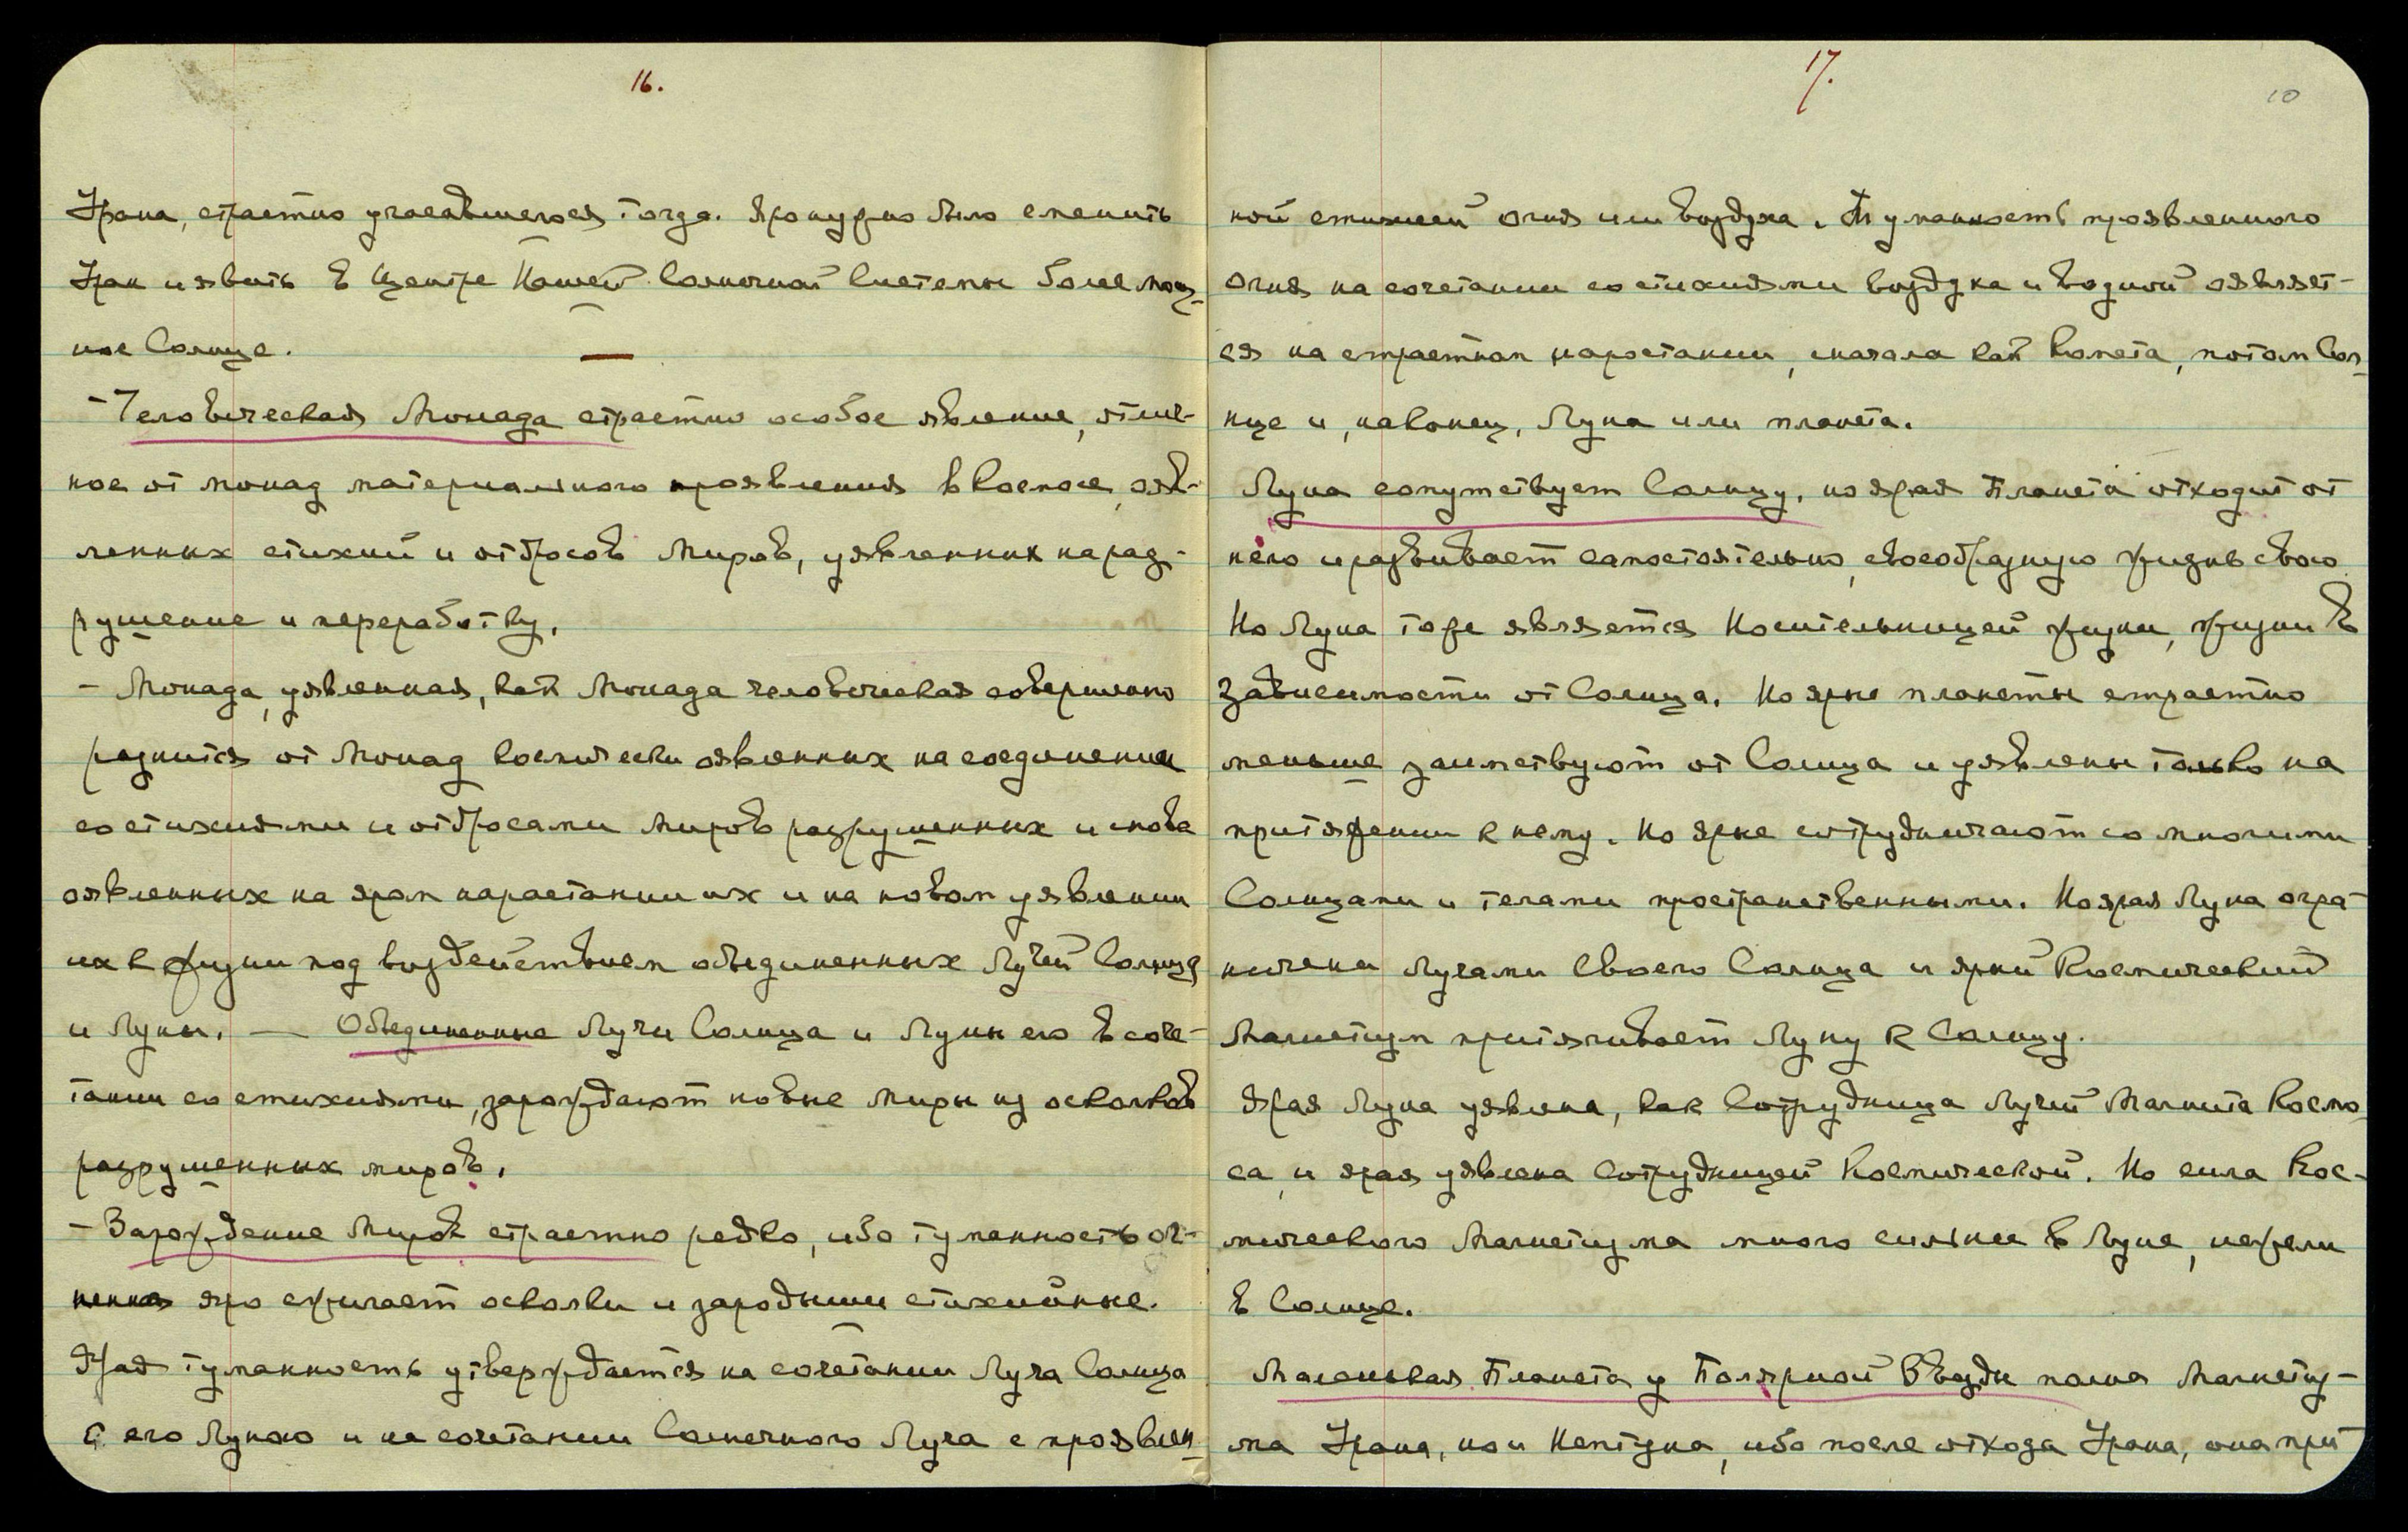 16.
Урана, страстно участвовавшегося тогда. Яро нужно было сменить
Уран и явить в центре Нашей Солнечной Системы более мощ-
ное Солнце.
- Человеческая Монада страстно особое явление, отлич-
ное от монад материального проявления в Космосе, яв-
ленных стихий и отбросов Миров, уявленных на раз-
рушение и переработку.
- Монада, уявленная, как Монада человеческая совершенно
разнится от Монад космически оявленных на соединении
со стихиями и отбросами Миров разрушенных и снова
оявленных на яром нарастании их и на новом уявлении
их к жизни под воздействием объединенных Лучей Солнца
и Луны. — Объединенные Лучи Солнца и Луны его в соче-
тании со стихиями, зарождают новые миры из осколков
разрушенных миров.
- Зарождение Миров страстно редко, ибо туманность ог-
ненная яро сжигает осколки и зародыши стихийные.
Ярая туманность утверждается на сочетании Луча Солнца
с его Луною и на сочетании Солнечного Луча с проявлен-
17.
10
ной стихией огня или воздуха. Туманность проявленного
огня на сочетании со стихиями воздуха и водной оявляет-
ся на страстном нарастании, сначала как Комета, потом Сол-
нце и, наконец, Луна или планета.
Луна сопутствует Солнцу, но ярая Планета отходит от
него и развивает самостоятельно, своеобразную жизнь свою.
Но Луна тоже является Носительницей жизни, жизни в
зависимости от Солнца. Но ярые планеты страстно
меньше заимствуют от Солнца и уявлены только на
притяжении к нему. Но ярые сотрудничают со многими
Солнцами и телами пространственными. Но ярая Луна огра-
ничена Лучами Своего Солнца и ярый Космический
Магнетизм притягивает Луну к Солнцу.
Ярая Луна уявлена, как Сотрудница Лучей Магнита Космо-
са, и ярая уявлена Сотрудницей Космической. Но сила Кос-
мического Магнетизма много сильнее в Луне, нежели
в Солнце.
Маленькая Планета у Полярной Звезды полна Магнетиз-
ма Урана, но и Нептуна, ибо после отхода Урана, она при